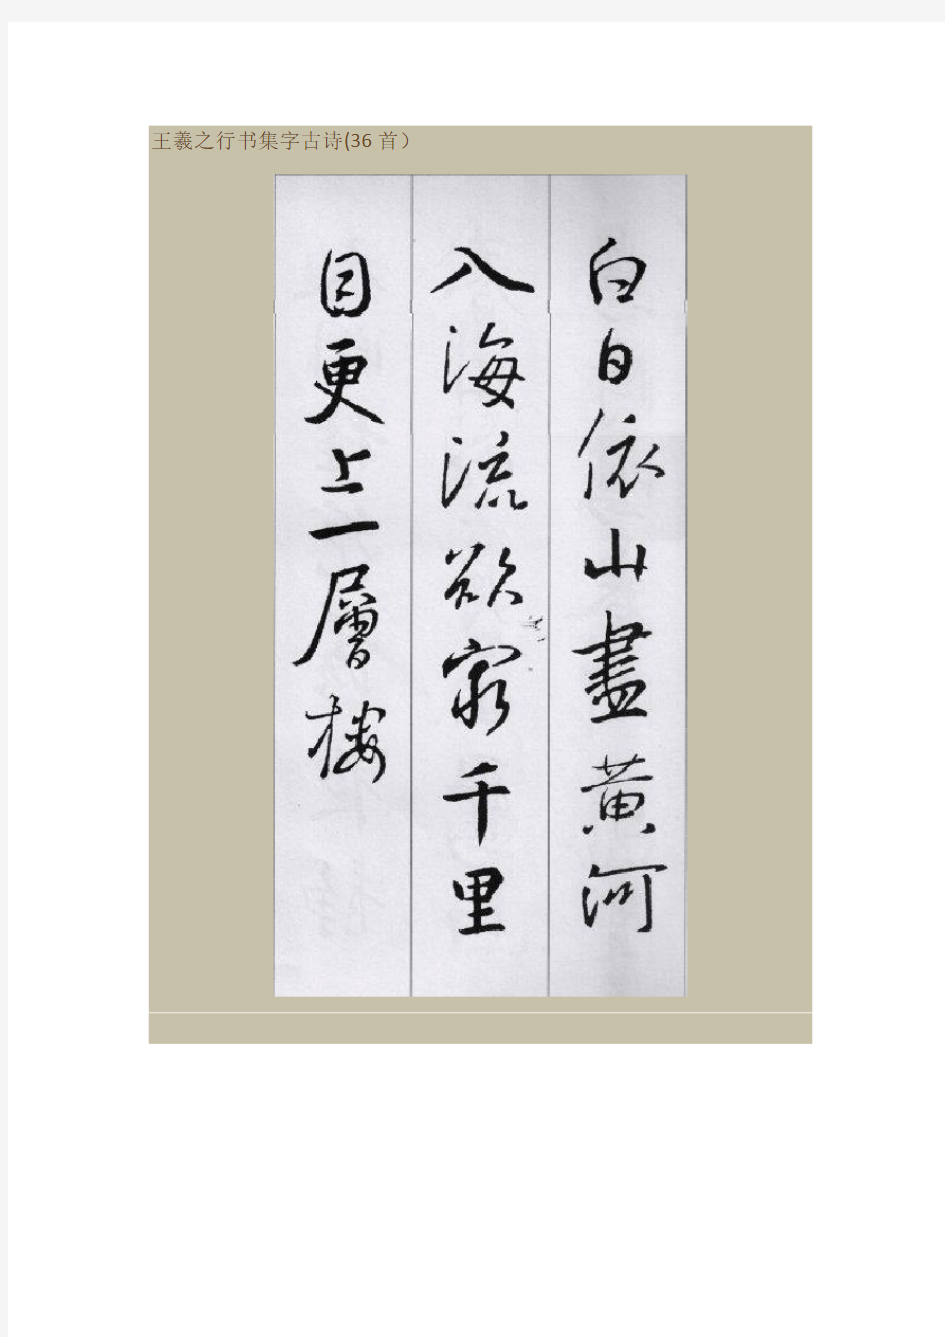 王羲之行书集字古诗(36 首）
白日依山盡黄河
入海流欲窮千里
目更上一層樓